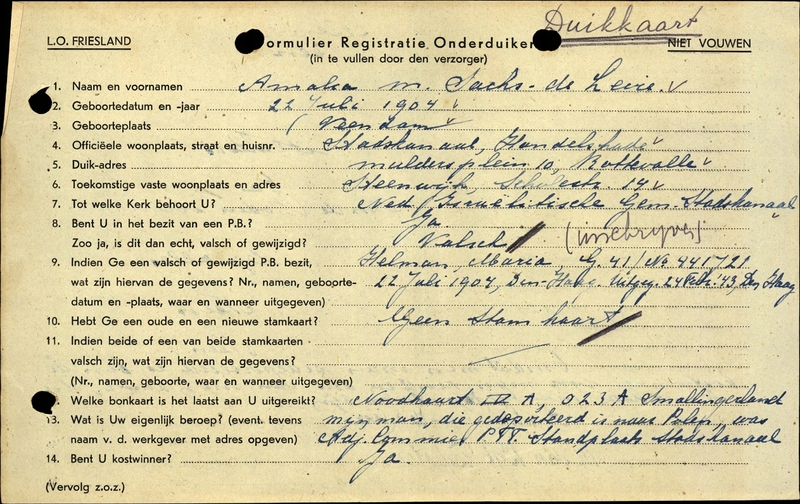 Duikkaart
L.O. FRIESLAND
Formulier Registratie Onderduiker
NIET VOUWEN
(in te vullen door den verzorger)
1. Naam en voornamen Amalia M. Sachs - de Leive.
2. Geboortedatum en -jaar 22 Juli 1904
3. Geboorteplaats Veendam
4. Officiëele woonplaats, straat en huisnr. Stadskanaal, Handelskade
5. Duik-adres Muldersplein 10, Rottevalle
6. Toekomstige vaste woonplaats en adres Steenwijk, Scholestr. 19
7. Tot welke Kerk behoort U? Ned. Israëlitische Gem. Stadskanaal
8. Bent U in het bezit van een P.B.? Ja
Zoo ja, is dit dan echt, valsch of gewijzigd? Valsch (inschrijven)
9. Indien Ge een valsch of gewijzigd P.B. bezit, Helman, Maria G. 41/No 441721
wat zijn hiervan de gegevens? Nr., namen, geboorte- 22 Juli 1904, Den-Haag. Uitgeg. 24 Febr. '43, Den Haag
datum en -plaats, waar en wanneer uitgegeven)
10. Hebt Ge een oude en een nieuwe stamkaart? Geen Stamkaart
11. Indien beide of een van beide stamkaarten
valsch zijn, wat zijn hiervan de gegevens?
(Nr., namen, geboorte, waar en wanneer uitgegeven)
Welke bonkaart is het laatst aan U uitgereikt? Noodkaart III A, 023 A Smallingerland
13. Wat is Uw eigenlijk beroep? (event. tevens mijn man, die gedeporteerd is naar Polen, was
naam v. d. werkgever met adres opgeven) Adj. Commies PTT Standplaats Stadskanaal
14. Bent U kostwinner? Ja.
(Vervolg z.o.z.)